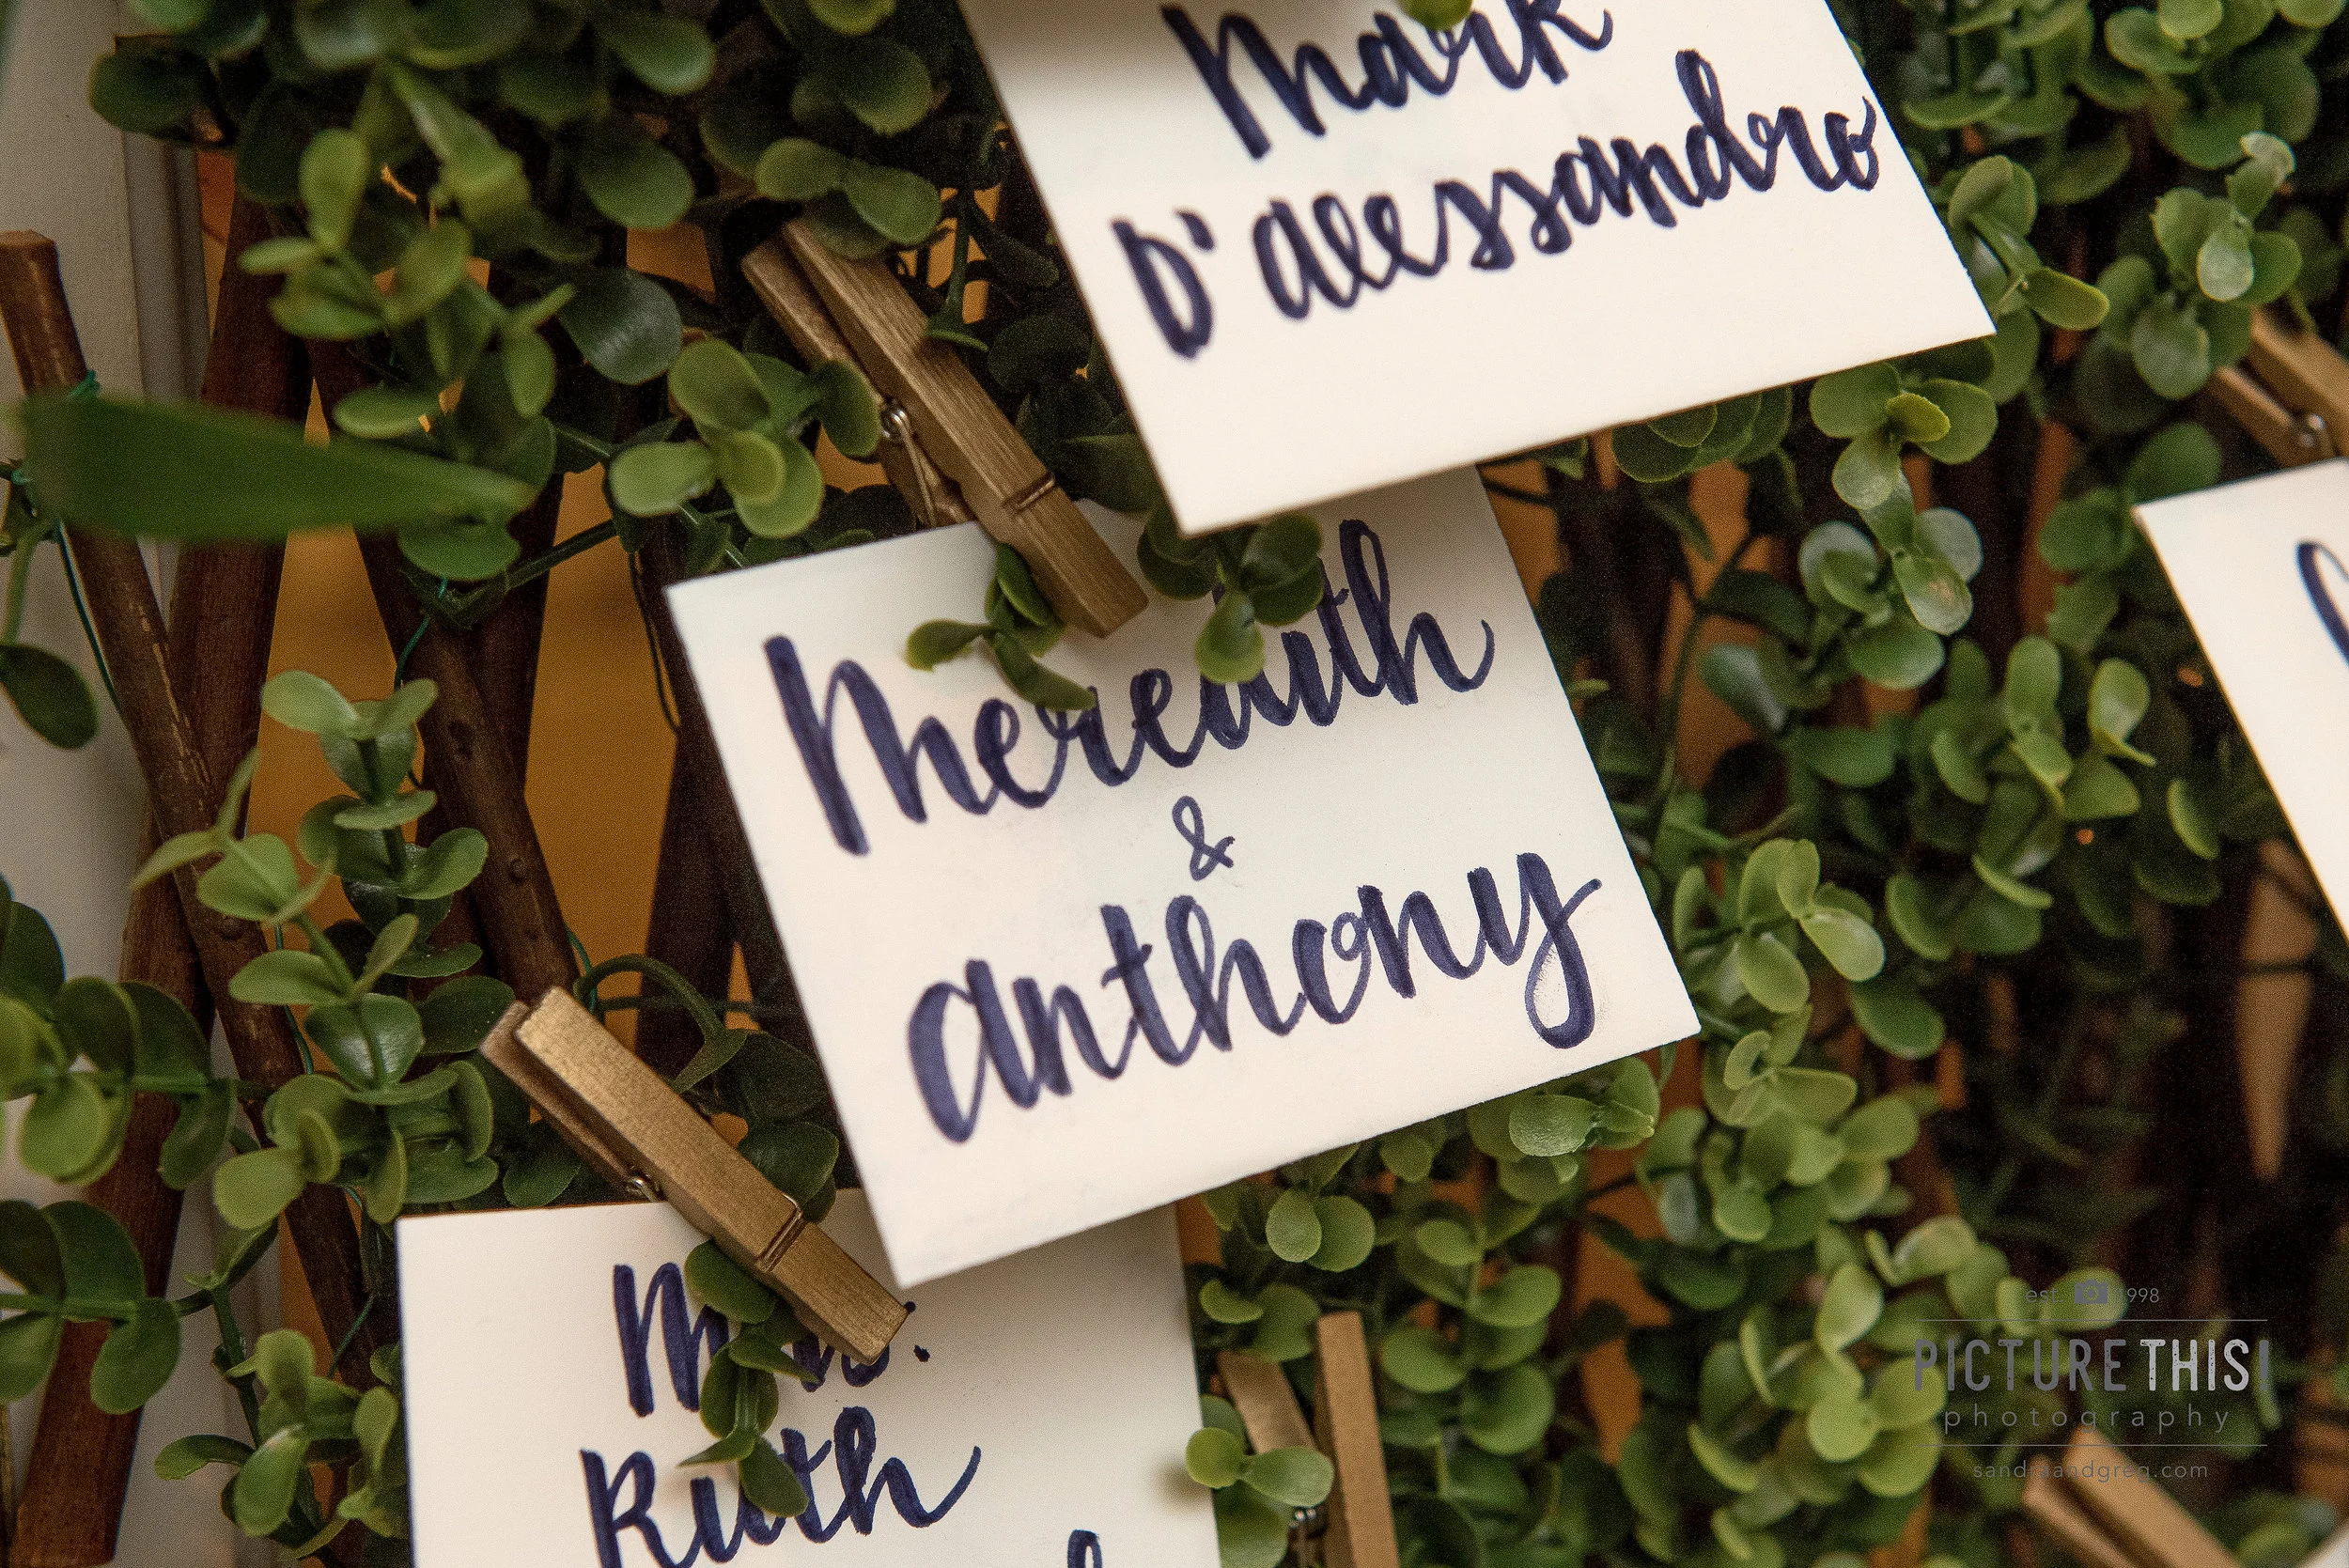 Mark
D'Alessandro
Meredith
&
Anthony
Mrs.
Ruth
est. 1998
PICTURE THIS!
photography
sandraandgreg.com